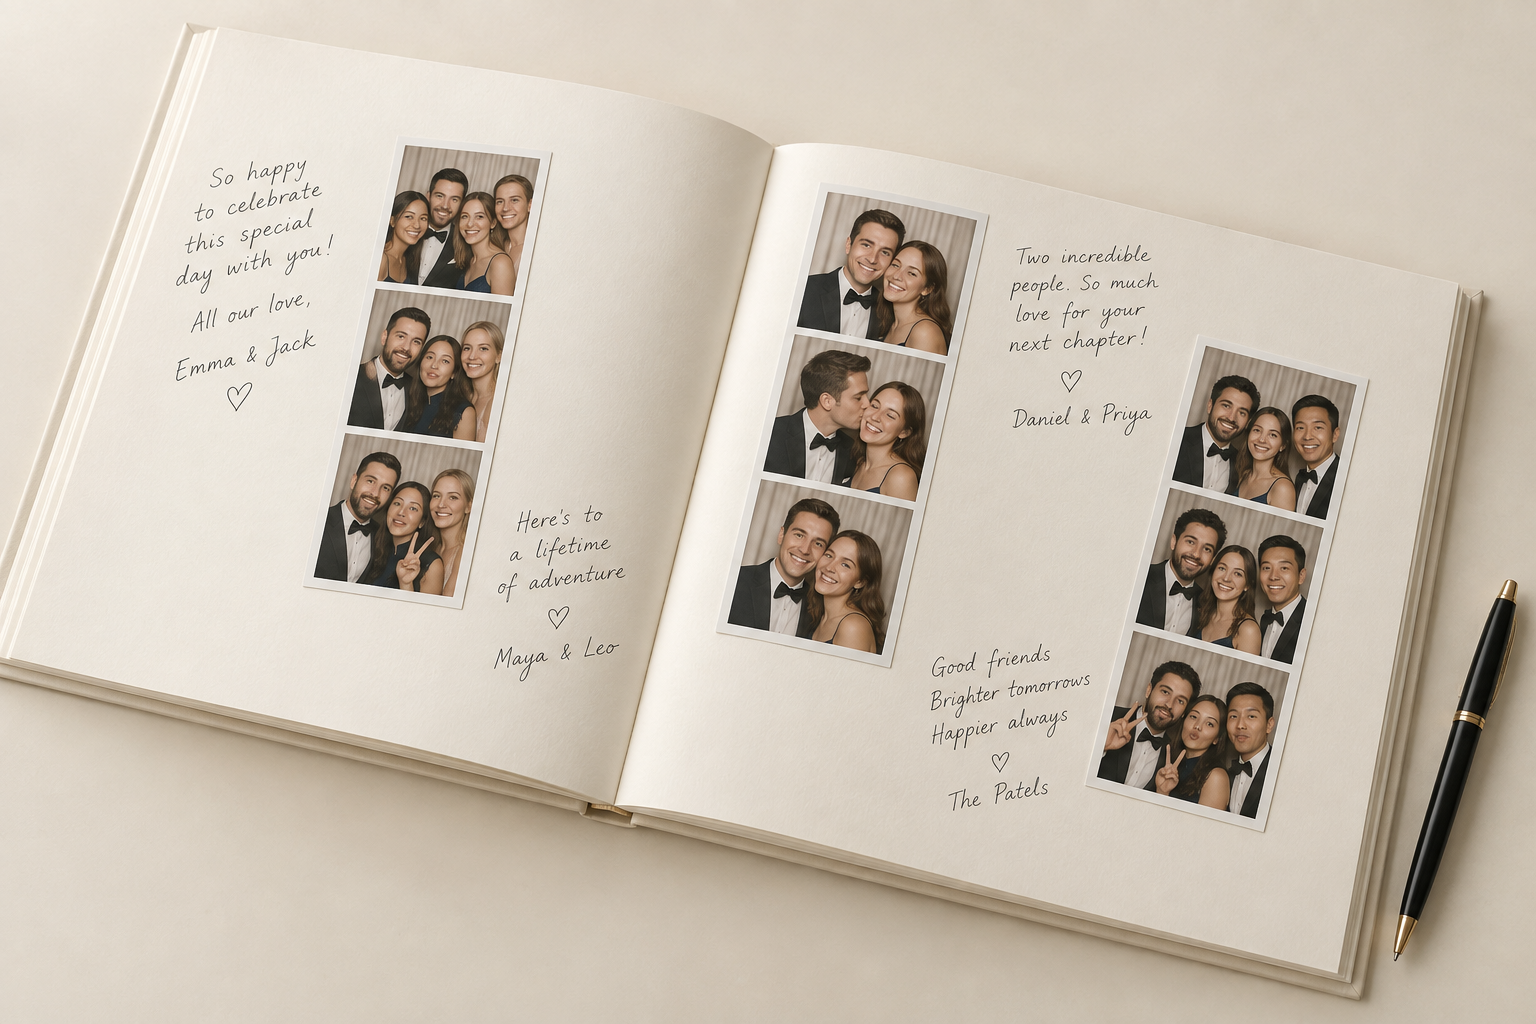 So happy
to celebrate
this special
day with you!
All our love,
Emma & Jack
Here's to
a lifetime
of adventure
Maya & Leo
Two incredible
people. So much
love for your
next chapter!
Daniel & Priya
Good friends
Brighter tomorrows
Happier always
The Patels